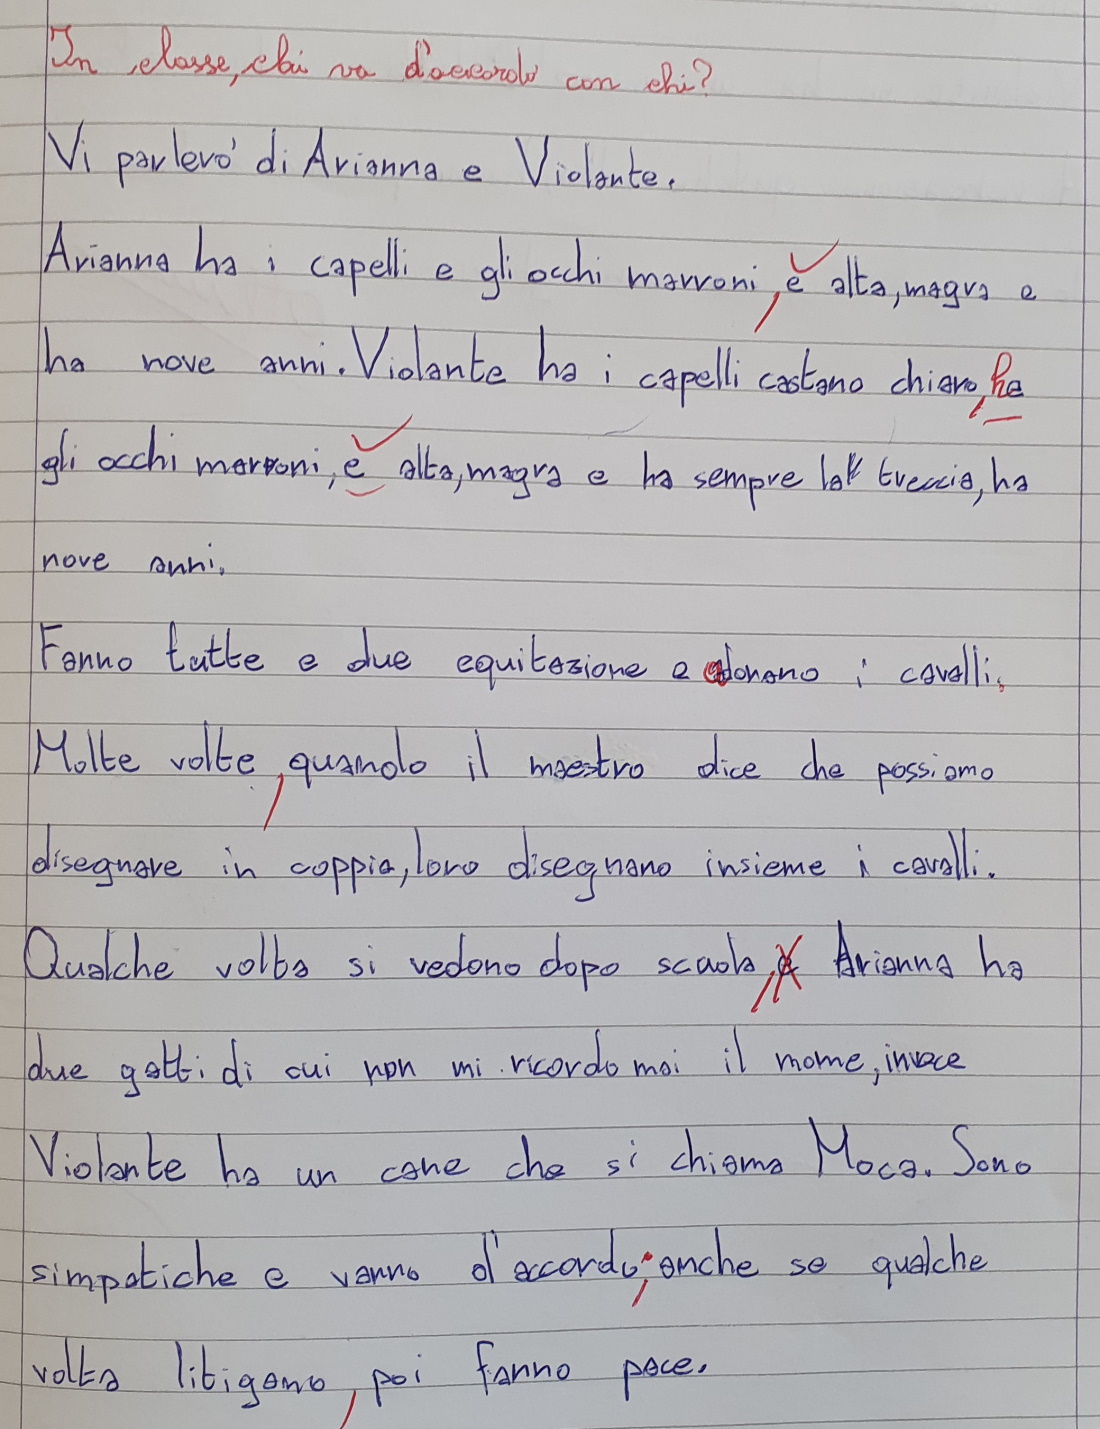 In classe, chi va d'accordo con chi?
Vi parlerò di Arianna e Violante.
Arianna ha i capelli e gli occhi marroni, è alta, magra e
ha nove anni. Violante ha i capelli castano chiaro, ha
gli occhi marroni, è alta, magra e ha sempre la treccia, ha
nove anni.
Fanno tutte e due equitazione e adorano i cavalli.
Molte volte, quando il maestro dice che possiamo
disegnare in coppia, loro disegnano insieme i cavalli.
Qualche volta si vedono dopo scuola, Arianna ha
due gatti di cui non mi ricordo mai il nome, invece
Violante ha un cane che si chiama Moca. Sono
simpatiche e vanno d'accordo, anche se qualche
volta litigano, poi fanno pace.